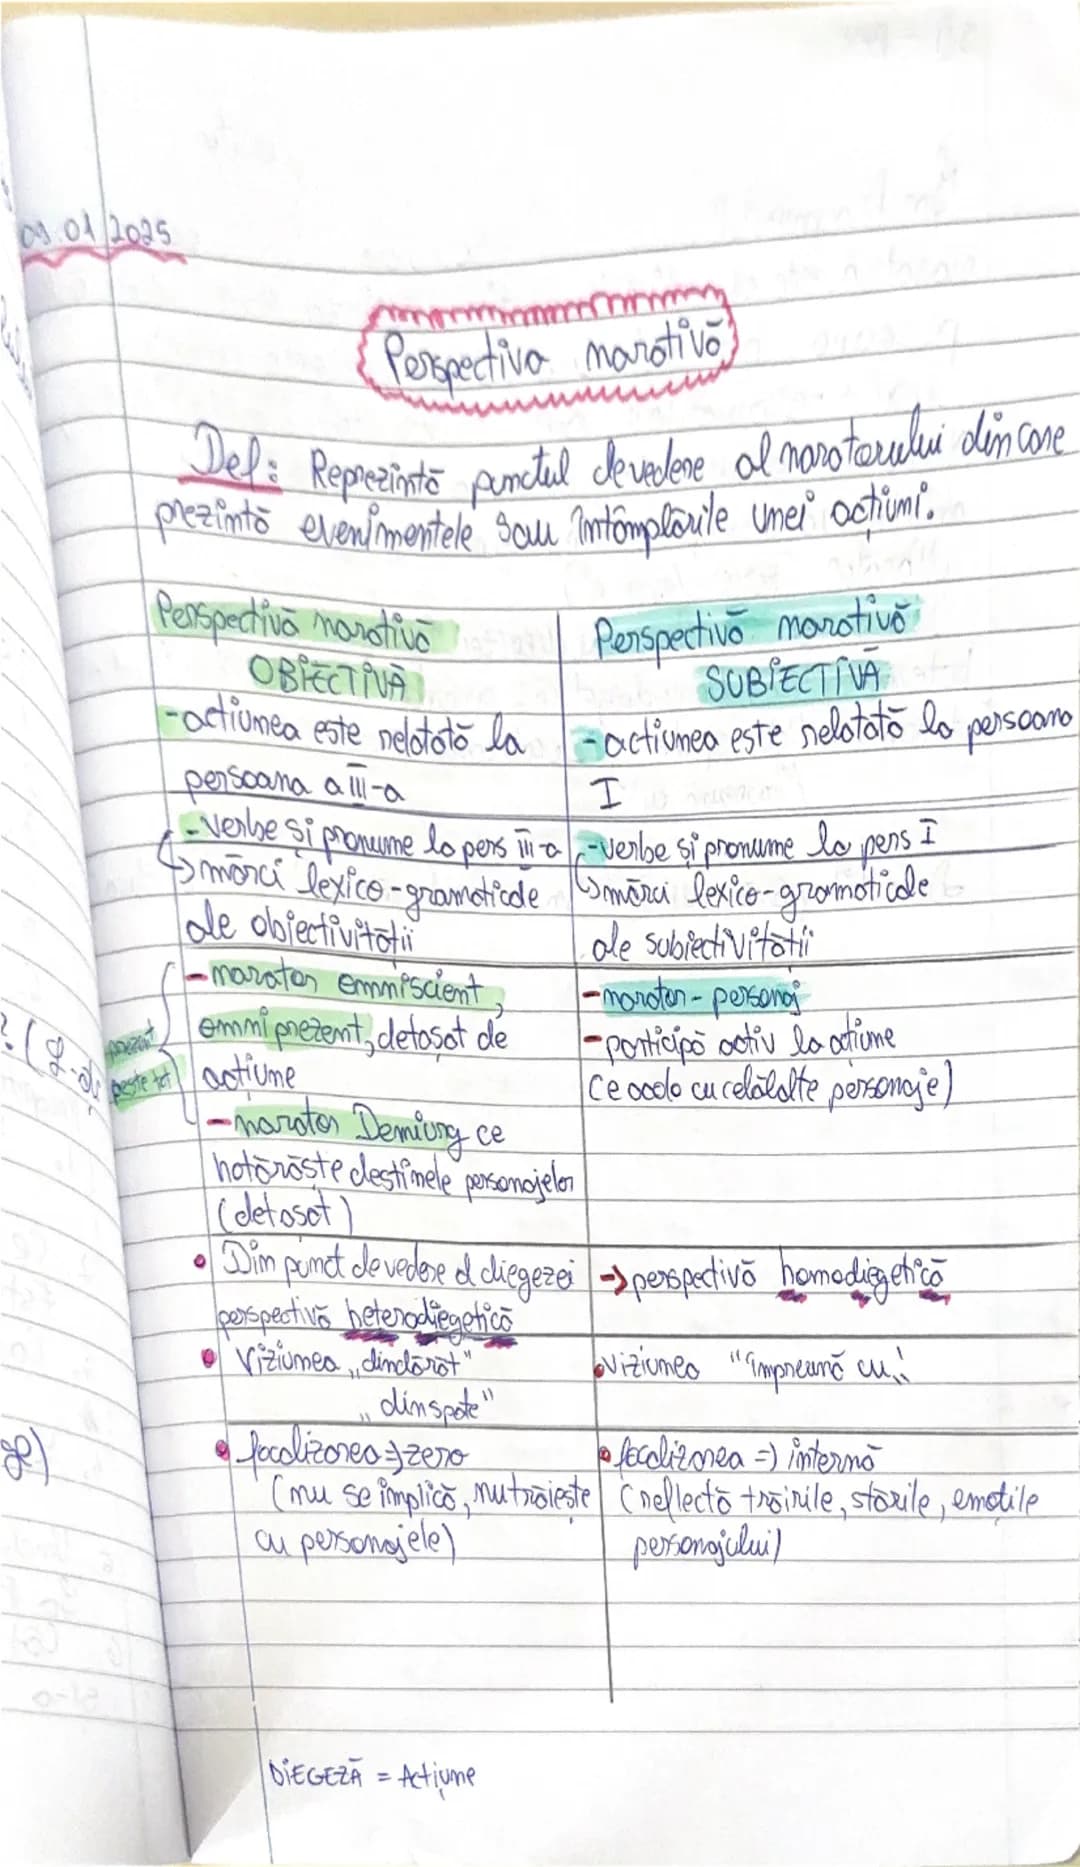 09.01.2025
Perspectiva narativă
Def: Reprezintă punctul de vedere al naratorului din care
prezintă evenimentele sau întâmplările unei acțiuni.
Perspectivă narativă
OBIECTIVĂ
-acțiunea este relatată la
persoana a III-a
-verbe și pronume la pers III-a
↳ mărci lexico-gramaticale
ale obiectivității
-narator omniscient,
omniprezent, detașat de
acțiune
prezent
peste tot
-narator Demiurg ce
hotărăște destinele personajelor
(detașat)
• Din punct de vedere al diegezei
perspectivă heterodiegetică
• Viziunea „dindărăt"
„dinspate"
• focalizarea => zero
(nu se implică, nu trăiește
cu personajele)
Perspectivă narativă
SUBIECTIVĂ
-acțiunea este relatată la persoana
I
-verbe și pronume la pers I
↳ mărci lexico-gramaticale
ale subiectivității
-narator-personaj
-participă activ la acțiune
(e acolo cu celălalte personaje)
-> perspectivă homodiegetică
• viziunea "împreună cu"
• focalizarea => internă
(reflectă trăirile, stările, emoțiile
personajului)
DIEGEZĂ = Acțiune